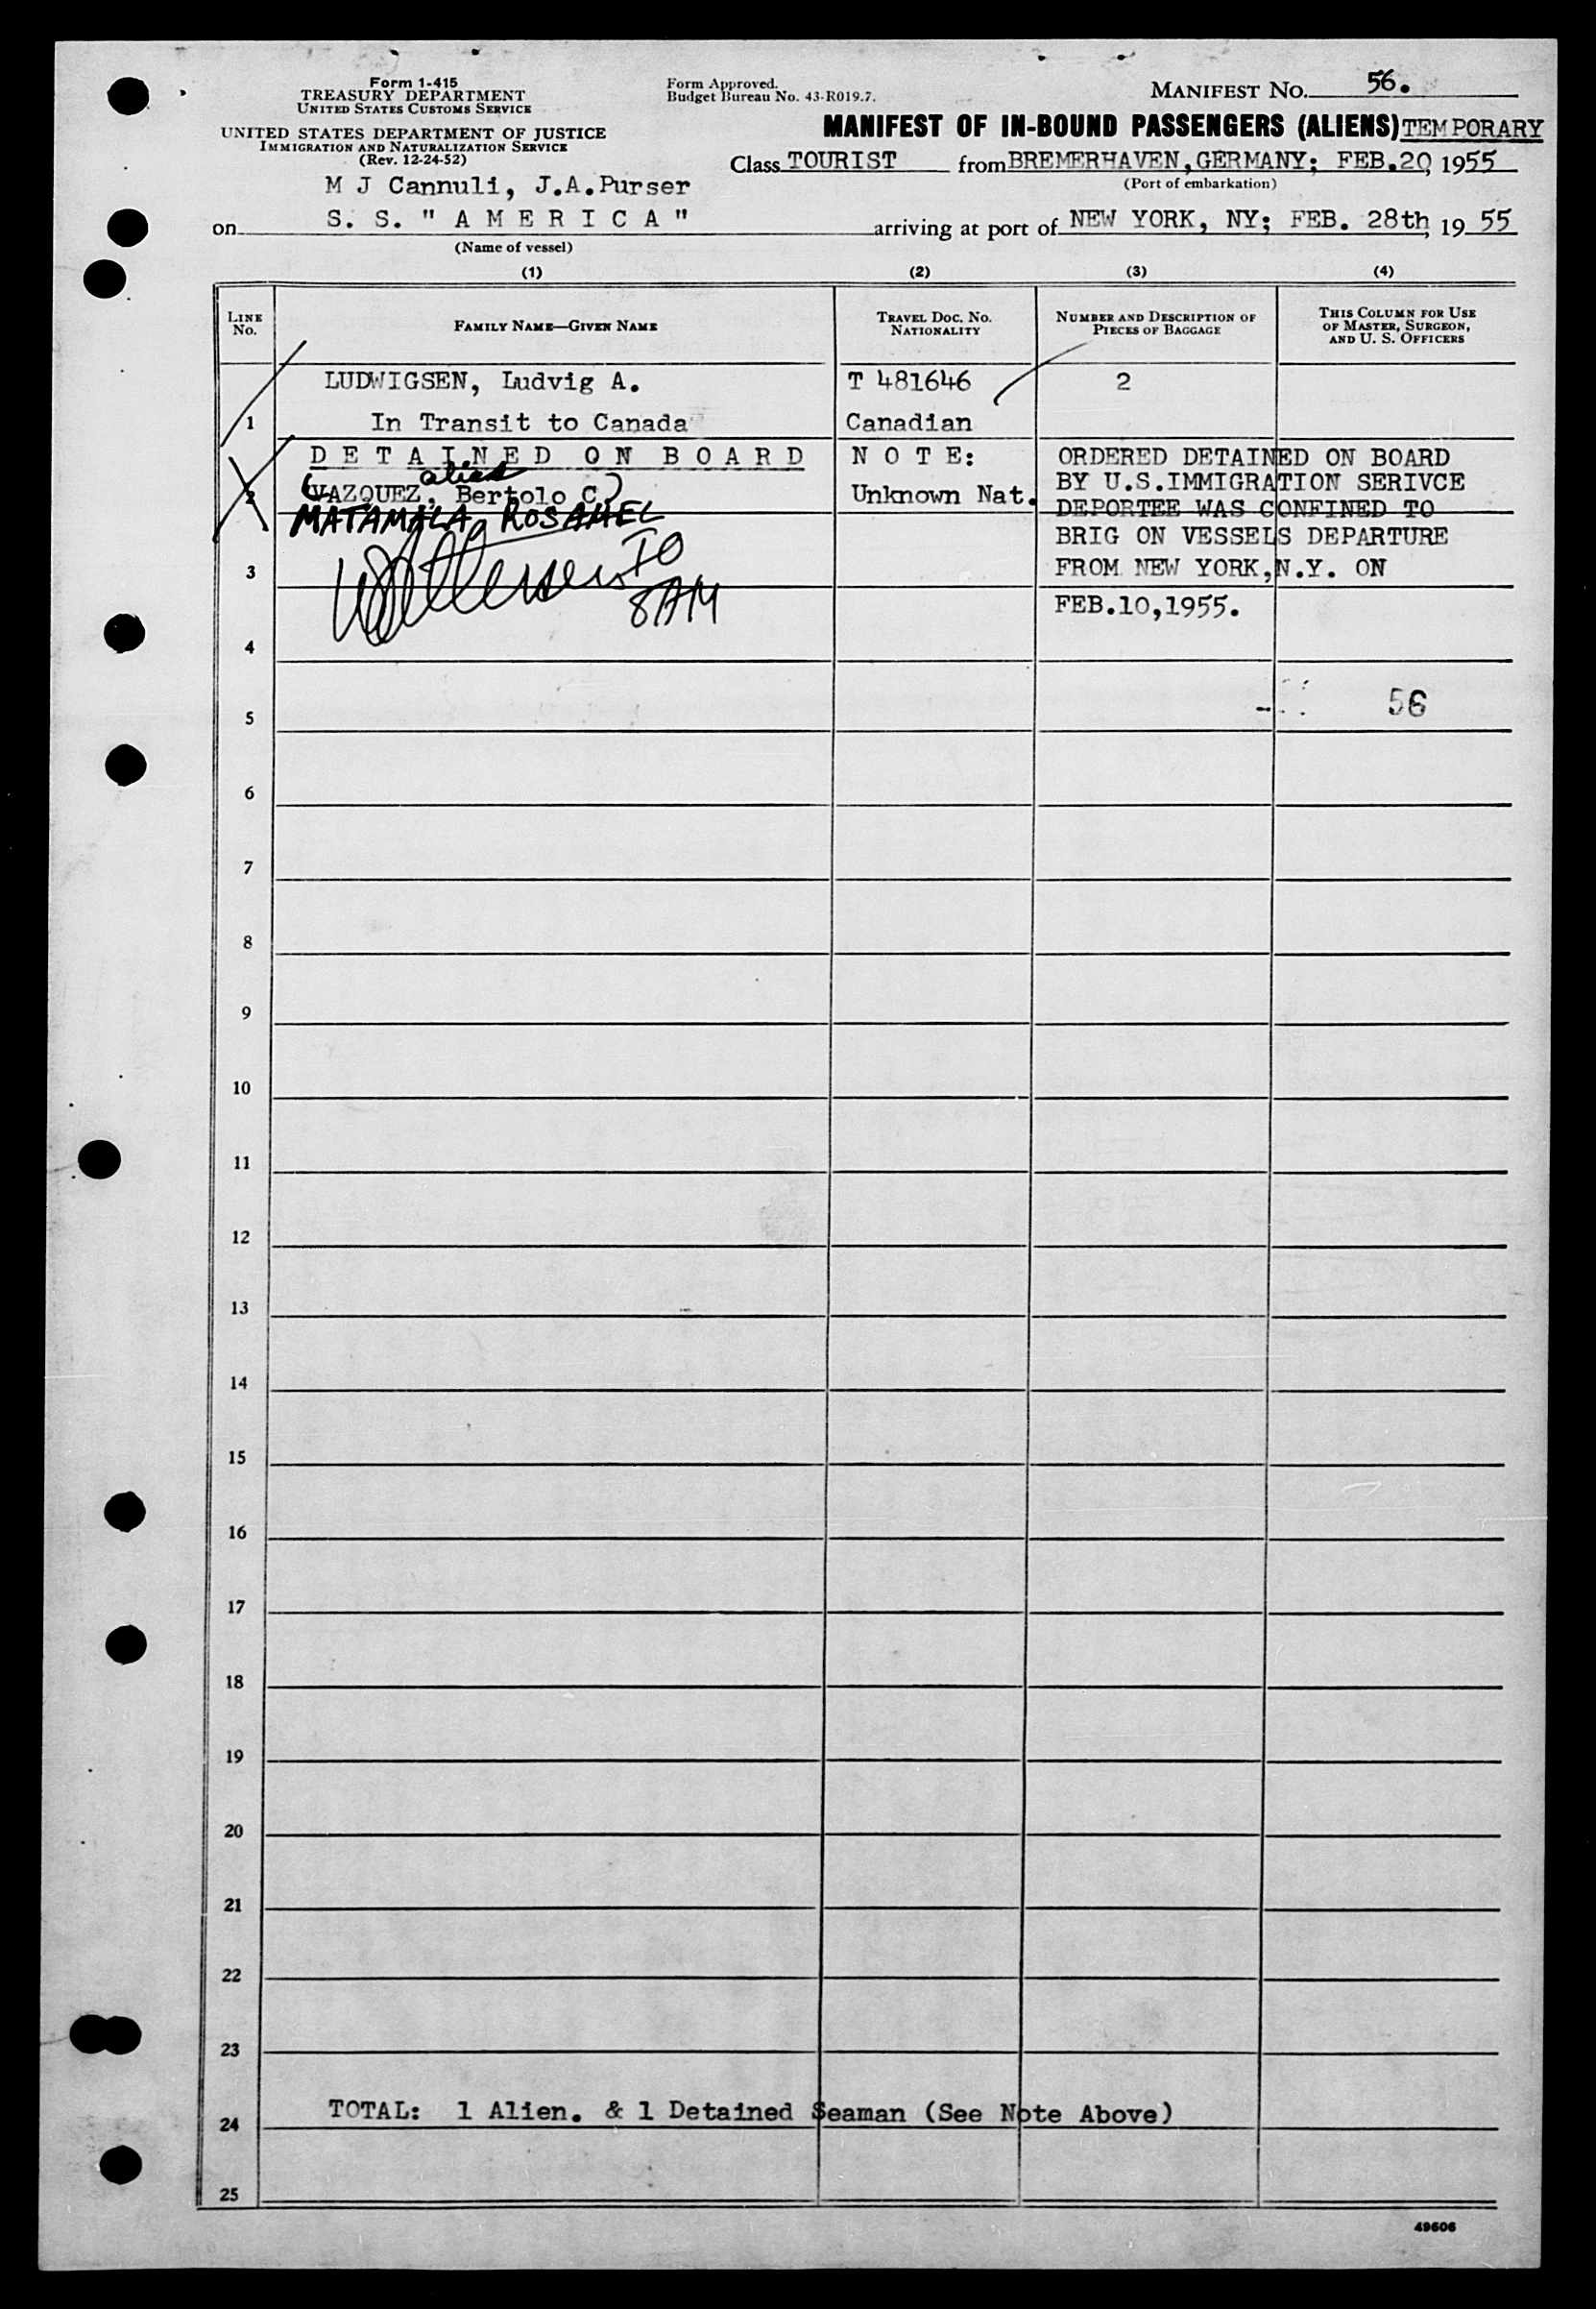 Form 1-415
TREASURY DEPARTMENT
UNITED STATES CUSTOMS SERVICE
UNITED STATES DEPARTMENT OF JUSTICE
IMMIGRATION AND NATURALIZATION SERVICE
(Rev. 12-24-52)
Form Approved.
Budget Bureau No. 43-R019.7.
MANIFEST NO. 56.
MANIFEST OF IN-BOUND PASSENGERS (ALIENS) TEMPORARY
Class TOURIST from BREMERHAVEN, GERMANY; FEB.20, 1955
(Port of embarkation)
M J Cannuli, J.A.Purser
on S. S. " A M E R I C A " arriving at port of NEW YORK, NY; FEB. 28th, 19 55
(Name of vessel)
(1) (2) (3) (4)
LINE No. FAMILY NAME—GIVEN NAME TRAVEL DOC. NO. NATIONALITY NUMBER AND DESCRIPTION OF PIECES OF BAGGAGE THIS COLUMN FOR USE OF MASTER, SURGEON, AND U. S. OFFICERS
LUDWIGSEN, Ludvig A. T 481646 2
1 In Transit to Canada Canadian
D E T A I N E D O N B O A R D N O T E: ORDERED DETAINED ON BOARD
alias
2 (VAZQUEZ, Bertolo C.) Unknown Nat. BY U.S.IMMIGRATION SERIVCE
MATAMALA, ROSAHEL DEPORTEE WAS CONFINED TO
BRIG ON VESSELS DEPARTURE
3 TO FROM NEW YORK,N.Y. ON
8AM FEB.10,1955.
4
5 56
6
7
8
9
10
11
12
13
14
15
16
17
18
19
20
21
22
23
24 TOTAL: 1 Alien. & 1 Detained Seaman (See Note Above)
25
49606